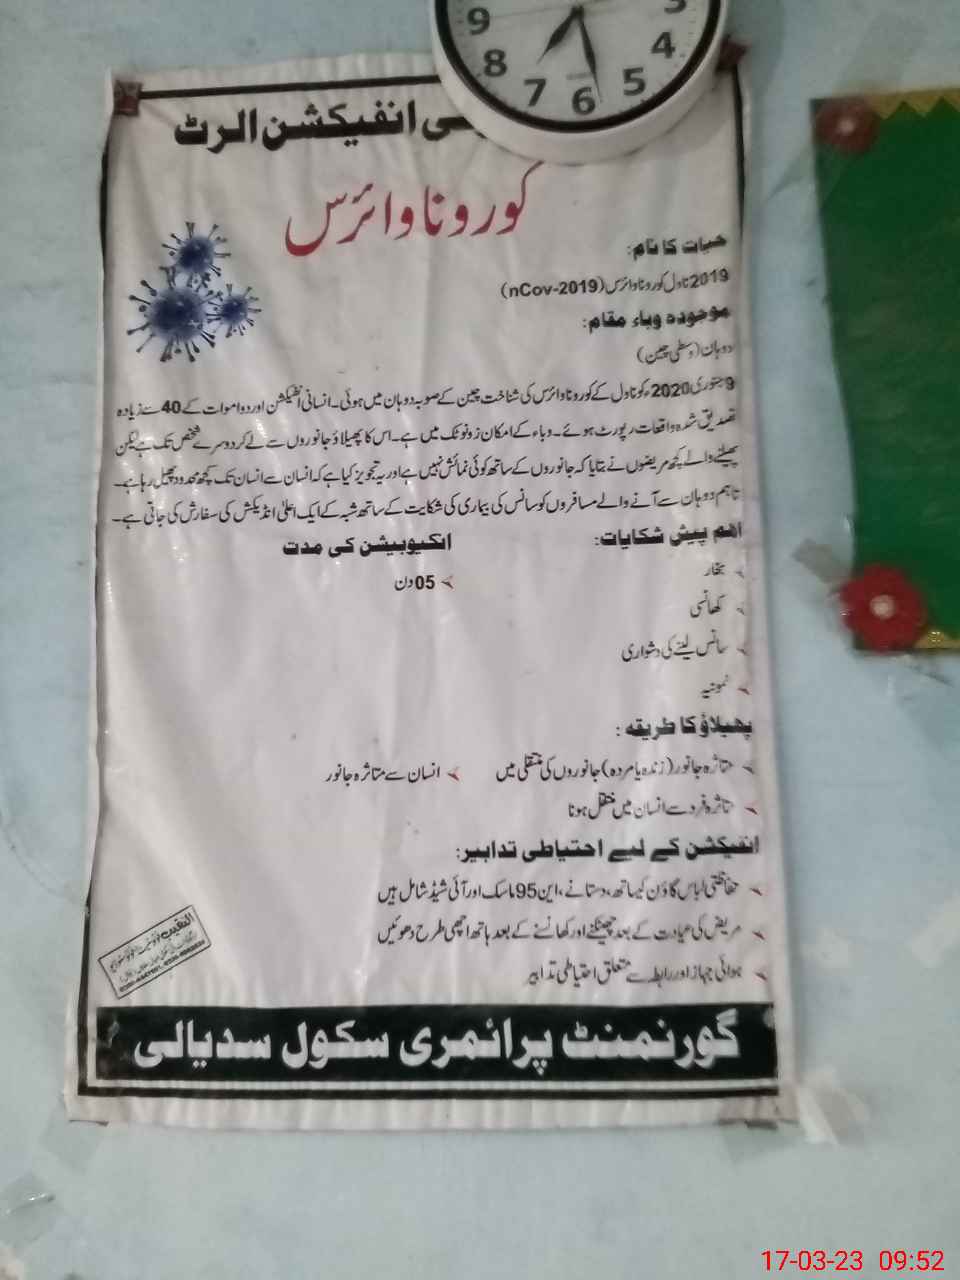 9 8 7 6 5 4 3
انفیکشن الرٹ
کورونا وائرس
حیات کا نام:
2019 ناول کورونا وائرس (nCov-2019)
موجودہ وباء مقام:
دوہان (وسطی چین)
9 جنوری 2020ء کو ناول کے کورونا وائرس کی شناخت چین کے صوبہ دوہان میں ہوئی۔ انسانی انفیکشن اور دو اموات کے 40 سے زیادہ
تصدیق شدہ واقعات رپورٹ ہوئے۔ وباء کے امکان زونوٹک میں ہے۔ اس کا پھیلاؤ جانوروں سے لے کر دوسرے شخص تک ہے لیکن
پھیلنے والے کچھ مریضوں نے بتایا کہ جانوروں کے ساتھ کوئی نمائش نہیں ہے اور یہ تجویز کیا ہے کہ انسان سے انسان تک کچھ محدود پھیل رہا ہے۔
تاہم دوہان سے آنے والے مسافروں کو سانس کی بیماری کی شکایت کے ساتھ شبہ کے ایک اعلیٰ انڈیکش کی سفارش کی جاتی ہے۔
اھم پیش شکایات:
بخار
کھانسی
سانس لینے کی دشواری
نمونیہ
انکیوبیشن کی مدت
05 دن
پھیلاؤ کا طریقہ:
متاثرہ جانور (زندہ یا مردہ) جانوروں کی منتقلی میں
انسان سے متاثرہ جانور
متاثرہ فرد سے انسان میں منتقل ہونا
انفیکشن کے لیے احتیاطی تدابیر:
حفاظتی لباس گاؤن کیساتھ، دستانے، این 95 ماسک اور آئی شیڈ شامل ہیں
مریض کی عیادت کے بعد چھینکنے اور کھانسنے کے بعد ہاتھ اچھی طرح دھوئیں
ہوائی جہاز اور رابطہ سے متعلق احتیاطی تدابیر
النقیب
گورنمنٹ پرائمری سکول سدیالی
17-03-23 09:52